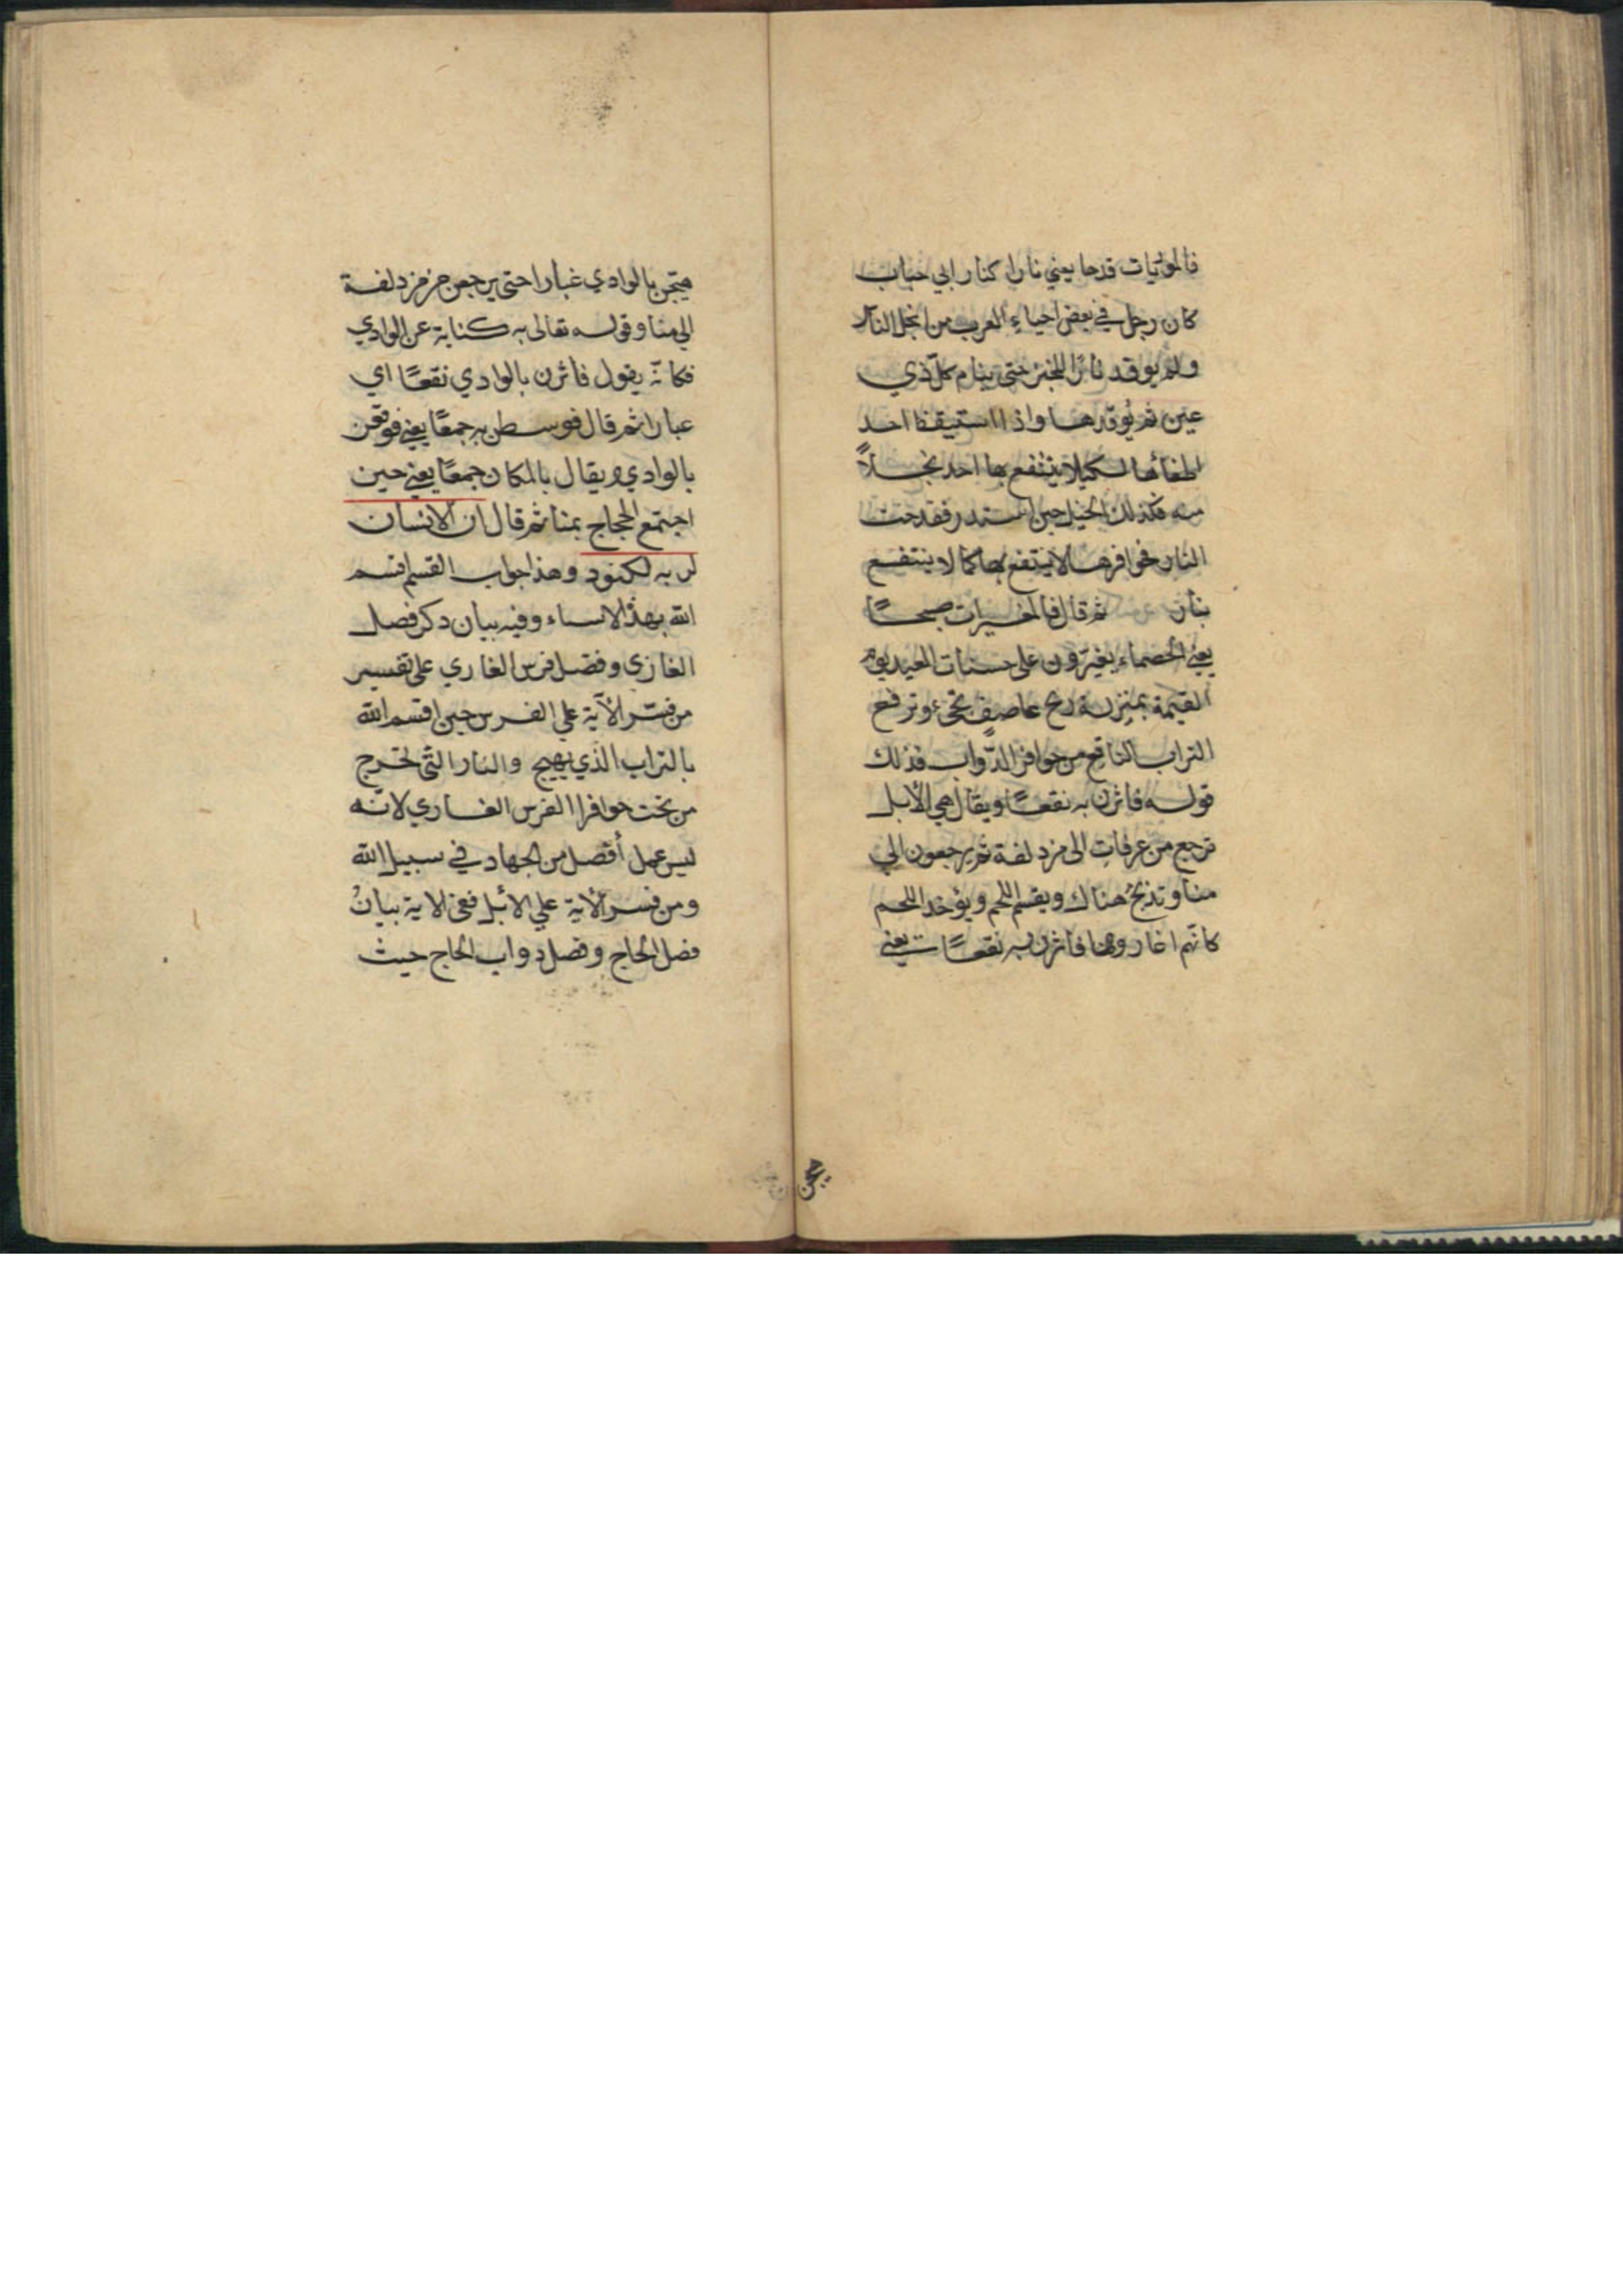 فالموريات قدحا يعني نارا كنار ابي حباب
كان رجل في بعض احياء العرب من ابخل الناس
ولم يوقد نارًا للخبز حتى ينام كلّ ذي
عين ثم يُوقدها واذا استيقظ احد
اطفأها لكيلا ينتفع بها احد بخلاً
منه فكذلك الخيل حين اشتد رفقدحت
النار حوافرها لا ينتفع بها كما لا ينتفع
بنار ثم قال فالمغيرات صبحًا
يعني الخصماء يغيرون على حسنات العبد يوم
القيمة بمنزلة ريح عاصف تجيء وترفع
التراب الناقع من حوافر الدّواب فذلك
قوله فاثرن به نقعًا ويقال هي الأبل
ترجع من عرفات الى مزدلفة ثم يرجعون الي
منا وتذبحُ هناك ويقسم اللحم ويؤخد اللحم
كانّهم اغاروها فاثرن به نقعًا يعني
يهيجن
يهيجن بالوادي غبارا حتى يرجعن من مزدلفة
الي منا وقوله تعالى به كناية عن الوادي
فكانّه يقول فاثرن بالوادي نقعًا اي
غبارا ثم قال فوسطن به جمعًا يعني فوقعن
بالوادي ويقال بالمكان جمعًا يعني حين
اجتمع الحجاج بمنا ثم قال ان الانسان
لربه لكنود وهذا جواب القسم اقسم
الله بهذه الاشياء وفيه بيان دكر فضل
الغازي وفضل فرس الغازي على تفسير
من فسّر الآية علي الفرس حين اقسم الله
بالتراب الذي يهيج والنار التّي تخرج
من تحت حوافر الفرس الغازي لانّه
ليس عمل أفضل من الجهاد في سبيل الله
ومن فسر الآية علي الأبل ففي الاية بيانُ
فضل الحاج وفضل دواب الحاج حيث